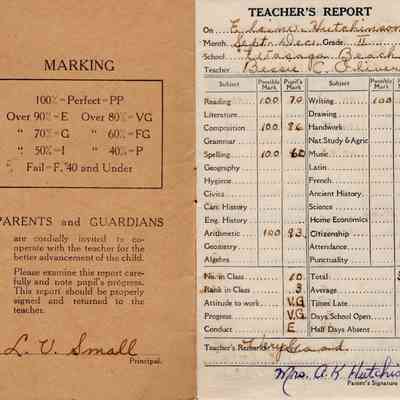 MARKING
100%=Perfect=PP
Over 90%=E Over 80%=VG
" 70%=G " 60%=FG
" 50%=I " 40%=P
Fail=F. 40 and Under
PARENTS and GUARDIANS
are cordially invited to co-
operate with the teacher for the
better advancement of the child.
Please examine this report care-
fully and note pupil's progress.
This report should be properly
signed and returned to the
teacher.
L. V. Small
Principal.
TEACHER'S REPORT
On Hutchinson
Month Sept-Dec. Grade II
School Beach
Teacher Bessie C.
Subject Possible Mark Pupil's Mark Subject Possible Mark
Reading 100 70 Writing 100
Literature Drawing
Composition 100 86 Handwork
Grammar Nat. Study & Agric
Spelling 100 60 Music
Geography Latin
Hygiene French
Civics Ancient History
Can. History Science
Eng. History Home Economics
Arithmetic 100 93 Citizenship
Geometry Attendance
Algebra Punctuality
No. in Class 10 Total
Rank in Class 3 Average
Attitude to work V.G Times Late
Progress V.G Days School Open
Conduct E Half Days Absent
Teacher's Remarks Very Good
Mrs. A. K. Hutchis
Parent's Signature